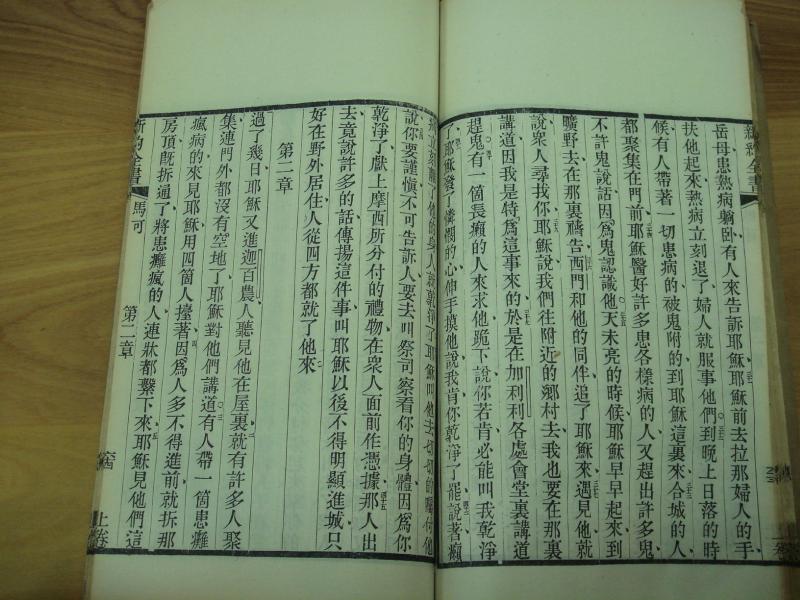 岳母患熱病躺臥有人來告訴耶穌耶穌前去拉那婦人的手
扶他起來熱病立刻退了婦人就服事他們到晚上日落的時
候有人帶著一切患病的被鬼附的到耶穌這裏來合城的人
都聚集在門前耶穌醫好許多患各樣病的人又趕出許多鬼
不許鬼說話因爲鬼認識他天未亮的時候耶穌早早起來到
曠野去在那裏禱告西門和他的同伴追了耶穌來遇見他就
說衆人尋找你耶穌說我們往附近的鄉村去我也要在那裏
講道因我是特爲這事來的於是在加利利各處會堂裏講道
趕鬼有一個長癩的人來求他跪下說你若肯必能叫我乾淨
了耶穌發了憐憫的心伸手摸他說我肯你乾淨了罷說著癩
病立刻離了他的身人就乾淨了耶穌叫他去切切的囑付他
說你要謹愼不可告訴人要去叫祭司察看你的身體因爲你
乾淨了獻上摩西所分付的禮物在衆人面前作憑據那人出
去竟說許多的話傳揚這件事叫耶穌以後不得明顯進城只
好在野外居住人從四方都就了他來
第二章
過了幾日耶穌又進迦百農人聽見他在屋裏就有許多人聚
集連門外都沒有空地了耶穌對他們講道有人帶一個患癱
瘋的來見耶穌用四個人擡著因爲人多不得進前就拆那
房頂旣拆通了將患癱瘋的人連牀都繫下來耶穌見他們這
新約全書 馬可 第二章 上卷